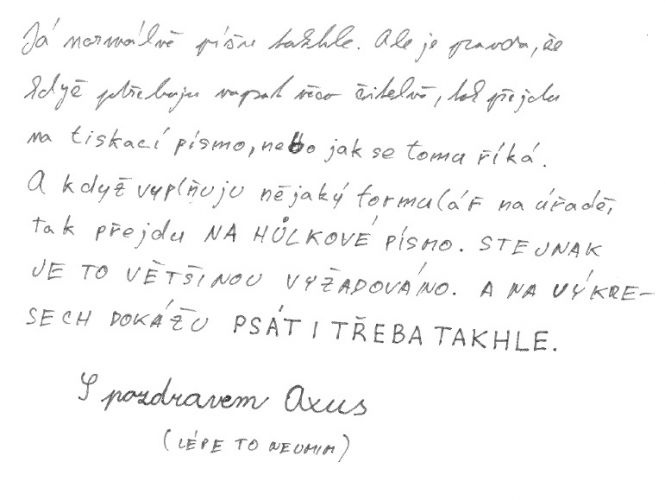 Já normálně píšu takhle. Ale je pravda, že
když potřebuju napsat něco čitelně, tak přejdu
na tiskací písmo, nebo jak se tomu říká.
A když vyplňuju nějaký formulář na úřadě,
tak přejdu NA HŮLKOVÉ PÍSMO. STEJNAK
JE TO VĚTŠINOU VYŽADOVÁNO. A NA VÝKRE-
SECH DOKÁŽU PSÁT I TŘEBA TAKHLE.
S pozdravem Axus
(LÉPE TO NEUMIM)